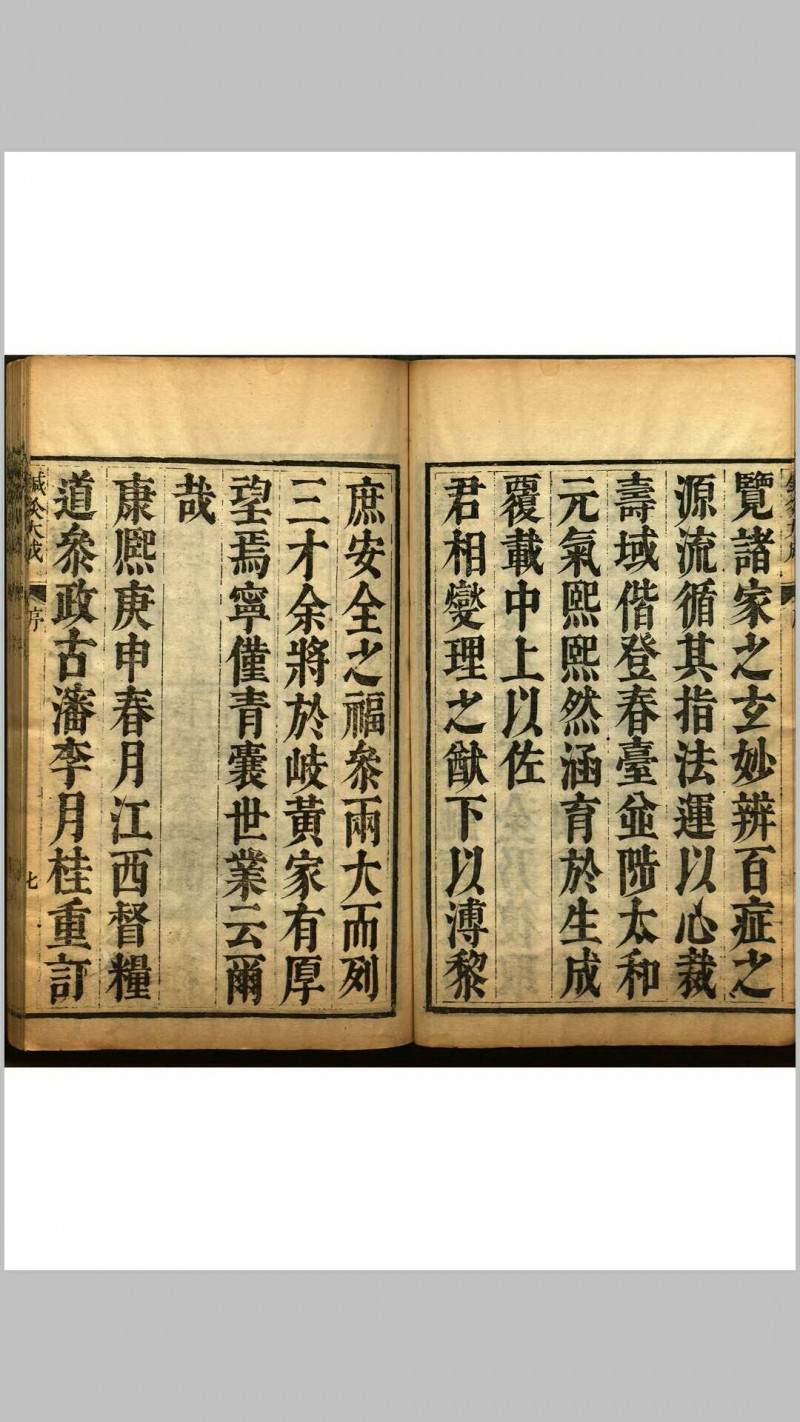 覽諸家之玄妙辨百症之
源流循其指法運以心裁
壽域偕登春臺並陟太和
元氣熙熙然涵育於生成
覆載中上以佐
君相燮理之猷下以溥黎
庶安全之福叅兩大而列
三才余將於岐黃家有厚
望焉寧僅青囊世業云爾
哉
康熙庚申春月江西督糧
道叅政古瀋李月桂重訂
鍼灸大成
序
七